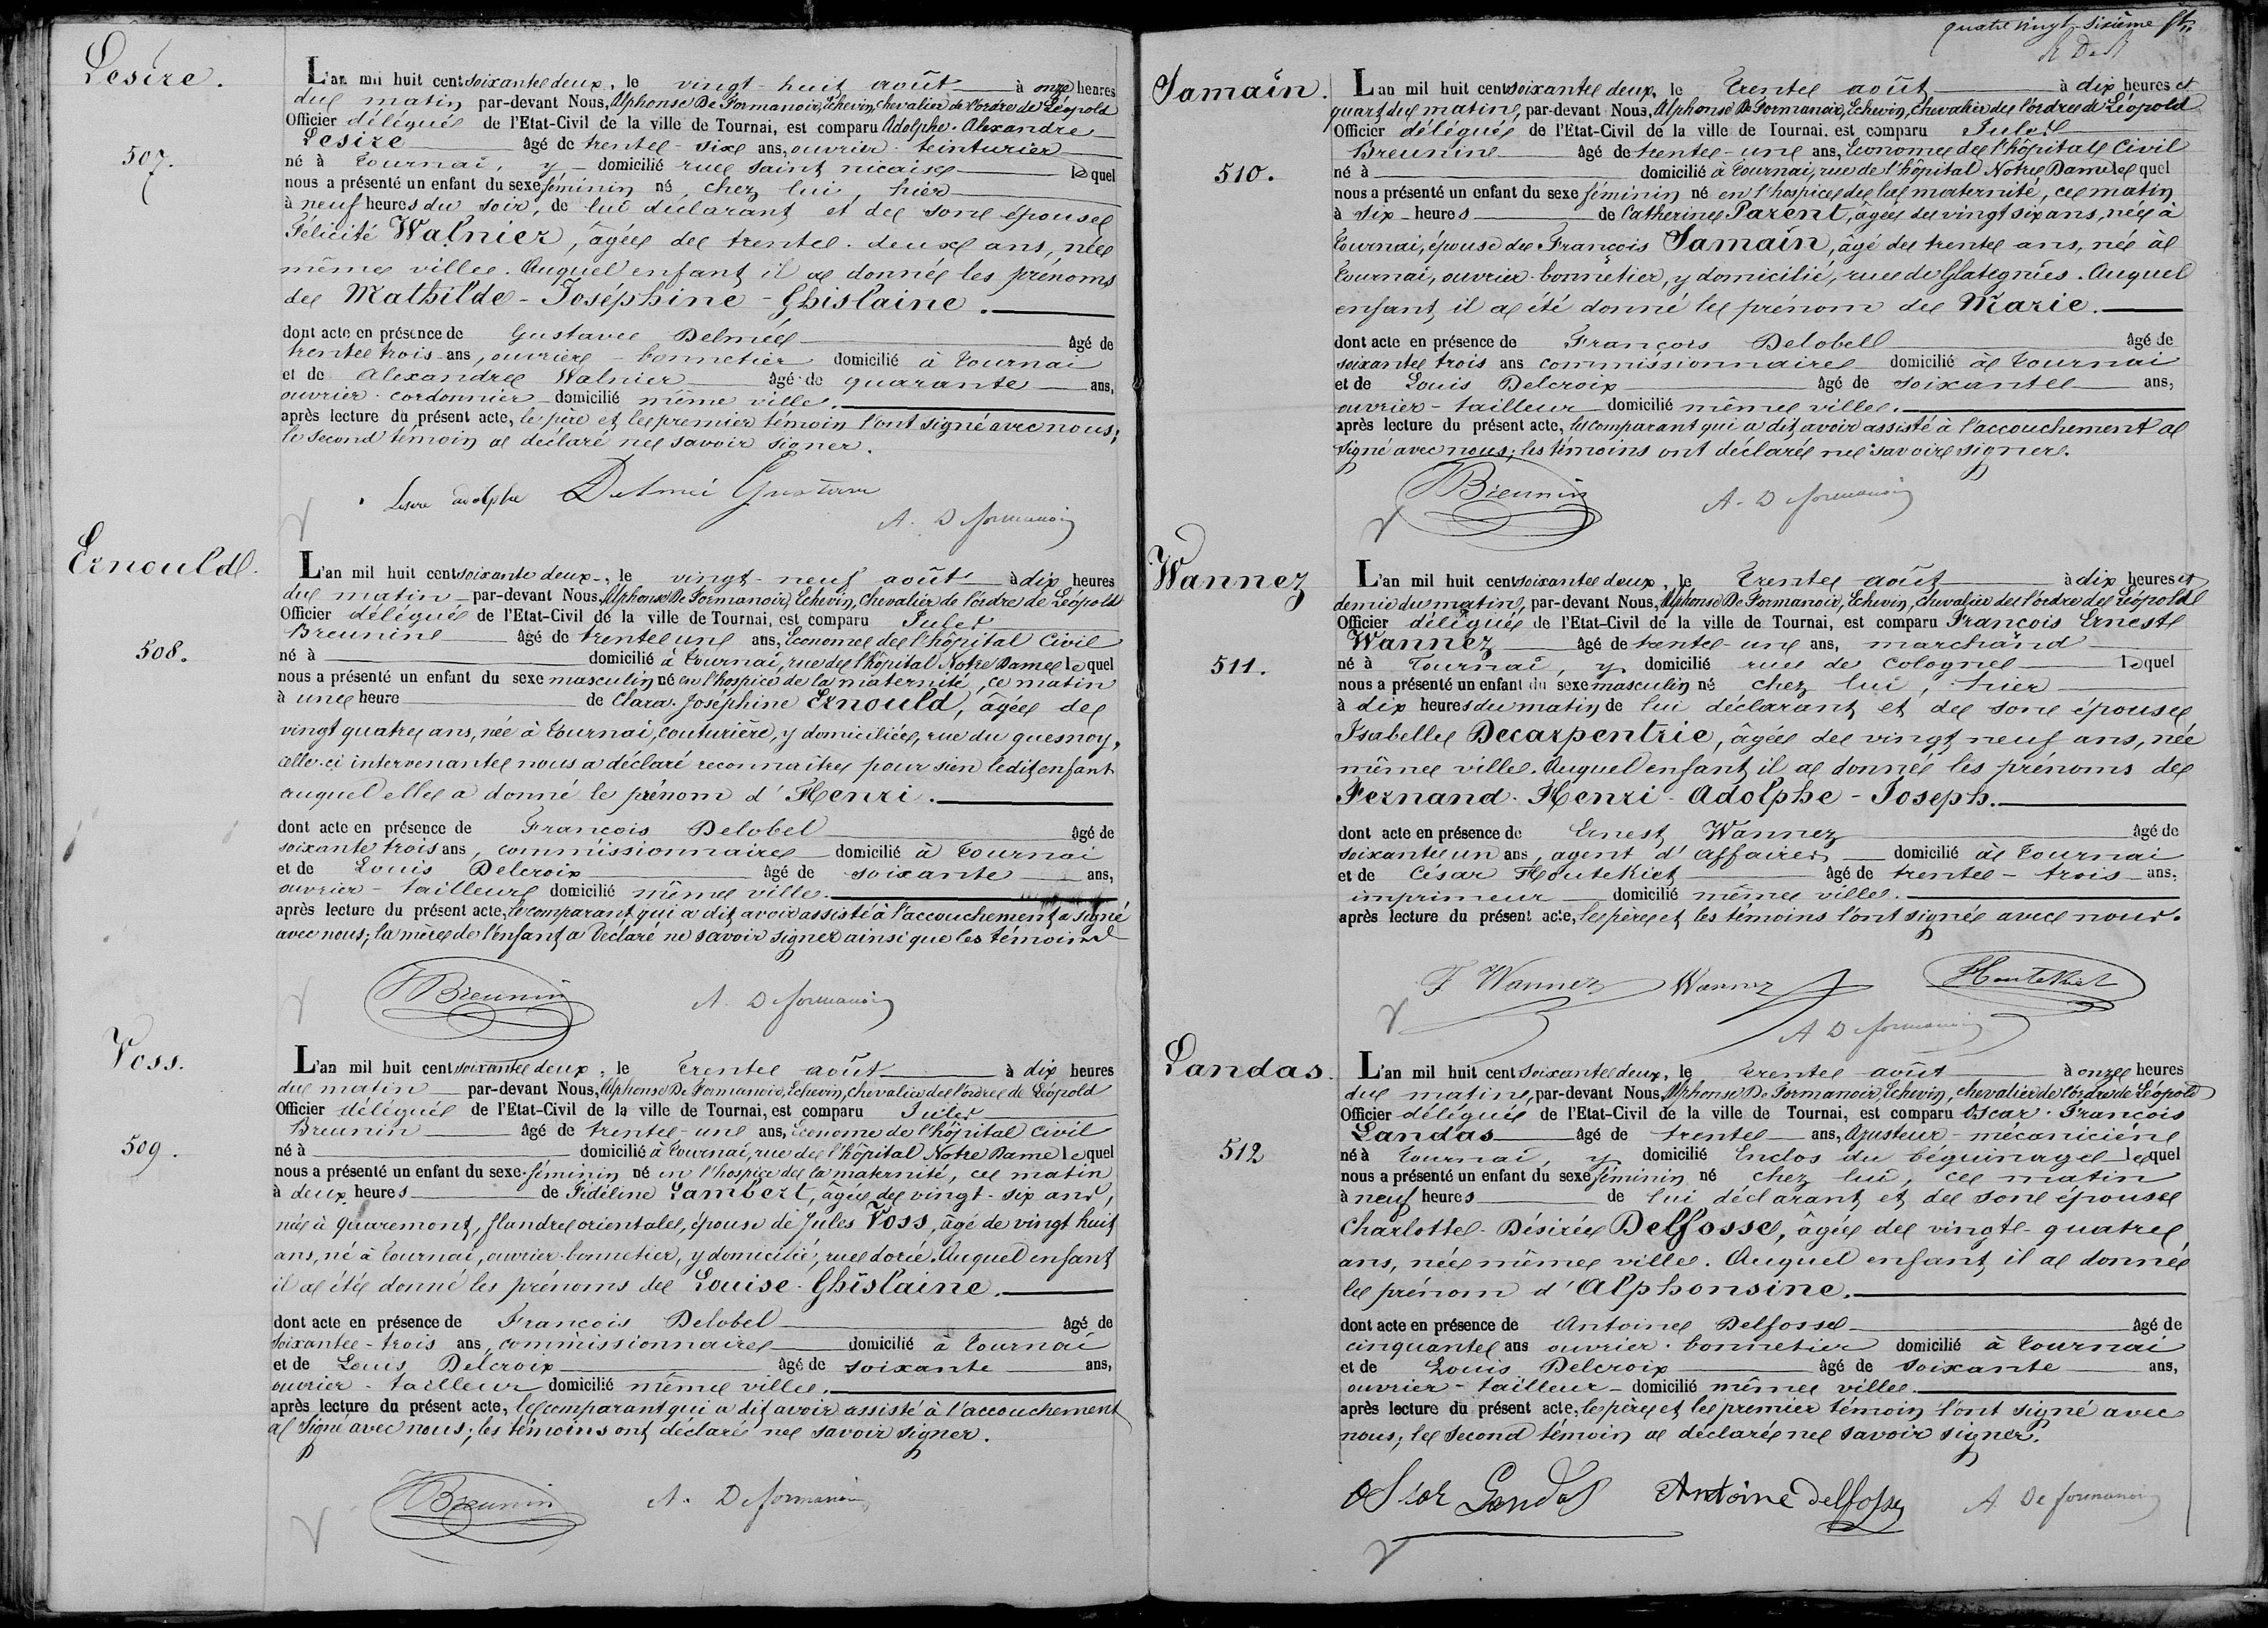 Lesire.
507.
L'an mil huit cent soixante deux, le vingt-huit août à onze heures
du matin par-devant Nous, Alphonse De Formanoir, Echevin, chevalier de l'ordre de Léopold
Officier délégué de l'Etat-Civil de la ville de Tournai, est comparu Adolphe-Alexandre
Lesire âgé de trente-six ans, ouvrier teinturier
né à Tournai, y domicilié rue saint nicaise lequel
nous a présenté un enfant du sexe féminin né, chez lui, hier
à neuf heures du soir, de lui déclarant et de son épouse
Félicité Walnier, âgée de trente-deux ans, née
même ville. Auquel enfant il a donné les prénoms
de Mathilde-Joséphine-Ghislaine.
dont acte en présence de Gustave Delmée âgé de
trente trois ans, ouvrier-bonnetier domicilié à Tournai
et de Alexandre Walnier âgé de quarante ans,
ouvrier-cordonnier domicilié même ville.
après lecture du présent acte, le père et le premier témoin l'ont signé avec nous;
le second témoin a déclaré ne savoir signer.
Lesire adolphe Delmée Gustave
A. Deformanoir
Ernould.
508.
L'an mil huit cent soixante deux, le vingt-neuf août à dix heures
du matin par-devant Nous, Alphonse De Formanoir, Echevin, chevalier de l'ordre de Léopold
Officier délégué de l'Etat-Civil de la ville de Tournai, est comparu Jules
Breunin âgé de trente une ans, Econome de l'hôpital civil
né à domicilié à Tournai, rue de l'hôpital Notre Dame lequel
nous a présenté un enfant du sexe masculin né en l'hospice de la maternité, ce matin
à une heure de Clara-Joséphine Ernould, âgée de
vingt quatre ans, née à Tournai, couturière, y domiciliée, rue du quesnoy,
celle-ci intervenante nous a déclaré reconnaître pour sien ledit enfant
auquel elle a donné le prénom d'Henri.
dont acte en présence de François Delobel âgé de
soixante trois ans, commissionnaire domicilié à Tournai
et de Louis Delcroix âgé de soixante ans,
ouvrier-tailleur domicilié même ville.
après lecture du présent acte, le comparant qui a dit avoir assisté à l'accouchement a signé
avec nous; la mère de l'enfant a déclaré ne savoir signer ainsi que les témoins
JBreunin A. Deformanoir
Voss.
509.
L'an mil huit cent soixante deux, le trente août à dix heures
du matin par-devant Nous, Alphonse De Formanoir, Echevin, chevalier de l'ordre de Léopold
Officier délégué de l'Etat-Civil de la ville de Tournai, est comparu Jules
Breunin âgé de trente-une ans, Econome de l'hôpital civil
né à domicilié à Tournai, rue de l'hôpital Notre Dame lequel
nous a présenté un enfant du sexe féminin né en l'hospice de la maternité, ce matin
à deux heures de Fidéline Lambert, âgée de vingt-six ans,
née à quaremont, flandre orientale, épouse de Jules Voss, âgé de vingt huit
ans, né à Tournai, ouvrier-bonnetier, y domicilié, rue dorée. Auquel enfant
il a été donné les prénoms de Louise-Ghislaine.
dont acte en présence de François Delobel âgé de
soixante-trois ans, commissionnaire domicilié à Tournai
et de Louis Delcroix âgé de soixante ans,
ouvrier-tailleur domicilié même ville.
après lecture du présent acte, le comparant qui a dit avoir assisté à l'accouchement
a signé avec nous; les témoins ont déclaré ne savoir signer.
JBreunin A. Deformanoir
quatre vingt-sixième ft
A De F
Samain.
510.
L'an mil huit cent soixante deux, le trente août à dix heures et
quart du matin, par-devant Nous, Alphonse De Formanoir, Echevin, chevalier de l'ordre de Léopold
Officier délégué de l'Etat-Civil de la ville de Tournai, est comparu Jules
Breunin âgé de trente-une ans, Econome de l'hôpital civil
né à domicilié à Tournai, rue de l'hôpital Notre Dame lequel
nous a présenté un enfant du sexe féminin né en l'hospice de la maternité, ce matin
à six heures de Catherine Parent, âgée de vingt six ans, née à
Tournai, épouse de François Samain, âgé de trente ans, né à
Tournai, ouvrier-bonnetier, y domicilié, rue de Glategnies. Auquel
enfant il a été donné le prénom de Marie.
dont acte en présence de François Delobel âgé de
soixante trois ans commissionnaire domicilié à Tournai
et de Louis Delcroix âgé de soixante ans,
ouvrier-tailleur domicilié même ville.
après lecture du présent acte, le comparant qui a dit avoir assisté à l'accouchement a
signé avec nous; les témoins ont déclaré ne savoir signer.
JBreunin A. Deformanoir
Wannez
511.
L'an mil huit cent soixante deux, le trente août à dix heures et
demie du matin, par-devant Nous, Alphonse De Formanoir, Echevin, chevalier de l'ordre de Léopold
Officier délégué de l'Etat-Civil de la ville de Tournai, est comparu François Ernest
Wannez âgé de trente-une ans, marchand
né à Tournai, y domicilié rue de cologne lequel
nous a présenté un enfant du sexe masculin né chez lui, hier
à dix heures du matin de lui déclarant et de son épouse
Isabelle Decarpentrie, âgée de vingt neuf ans, née
même ville. Auquel enfant il a donné les prénoms de
Fernand-Henri-Adolphe-Joseph.
dont acte en présence de Ernest Wannez âgé de
soixante un ans, agent d'affaires domicilié à Tournai
et de César Houtekiet âgé de trente-trois ans,
imprimeur domicilié même ville.
après lecture du présent acte, le père et les témoins l'ont signé avec nous.
F Wannez Wannez Houtekiet
A Deformanoir
Landas.
512
L'an mil huit cent soixante deux, le trente août à onze heures
du matin, par-devant Nous, Alphonse De Formanoir, Echevin, chevalier de l'ordre de Léopold
Officier délégué de l'Etat-Civil de la ville de Tournai, est comparu Oscar-François
Landas âgé de trente ans, Ajusteur-mécanicien
né à Tournai, y domicilié Enclos du béguinage lequel
nous a présenté un enfant du sexe féminin né chez lui, ce matin
à neuf heures de lui déclarant et de son épouse
Charlotte-Désirée Delfosse, âgée de vingt-quatre
ans, née même ville. Auquel enfant il a donné
le prénom d'Alphonsine.
dont acte en présence de Antoine Delfosse âgé de
cinquante ans ouvrier-bonnetier domicilié à Tournai
et de Louis Delcroix âgé de soixante ans,
ouvrier-tailleur domicilié même ville.
après lecture du présent acte, le père et le premier témoin l'ont signé avec
nous; le second témoin a déclaré ne savoir signer.
Oscar Landas Antoine Delfosse A Deformanoir